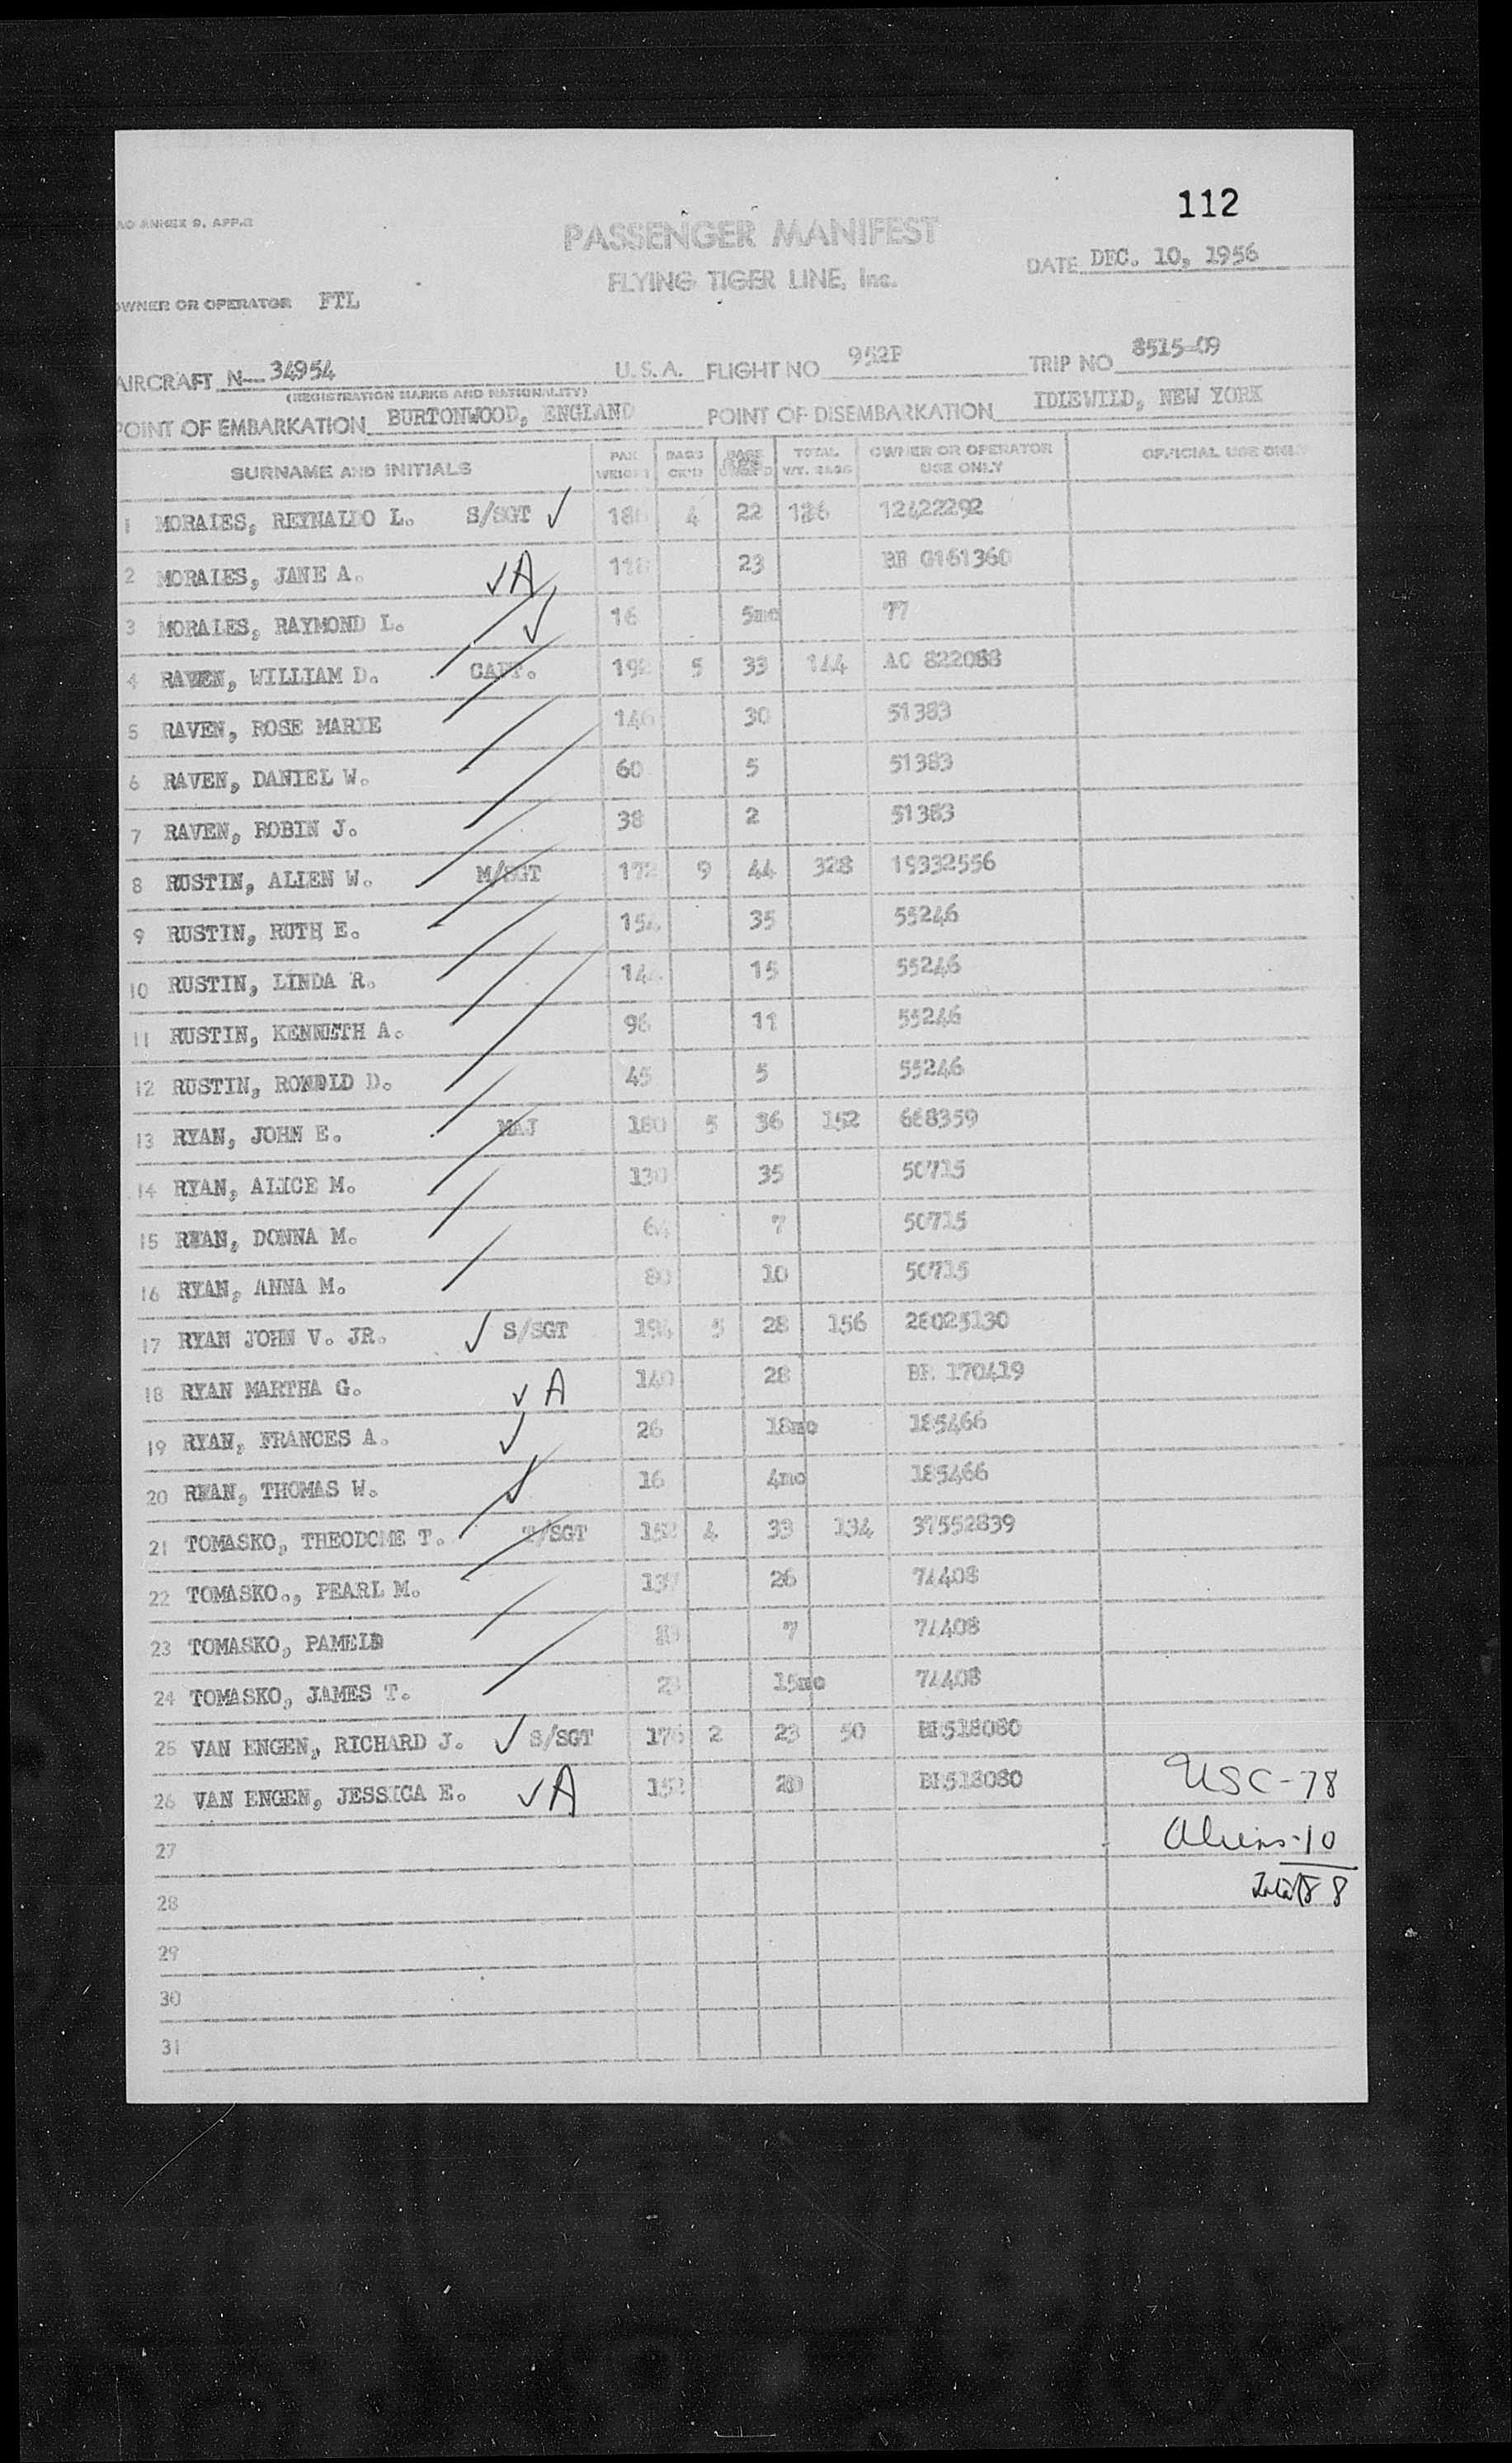 112
ANNEX 9, APP.
PASSENGER MANIFEST
DATE DEC. 10, 1956
FLYING TIGER LINE, Inc.
OWNER OR OPERATOR FTL
AIRCRAFT N— 34954 U. S. A. FLIGHT NO 952P TRIP NO 8515-09
(REGISTRATION MARKS AND NATIONALITY)
POINT OF EMBARKATION BURTONWOOD, ENGLAND POINT OF DISEMBARKATION IDLEWILD, NEW YORK
SURNAME AND INITIALS PAX WEIGHT BAGS CK'D TOTAL WT. BAGS OWNER OR OPERATOR USE ONLY OFFICIAL USE ONLY
1 MORALES, REYNALDO L. S/SGT ✓ 4 22 12422292
2 MORALES, JANE A. ✓A 23 BR G161360
3 MORALES, RAYMOND L. ✓ 16 5mo 77
4 RAVEN, WILLIAM D. CAPT. 192 5 33 144 AO 822088
5 RAVEN, ROSE MARIE 146 30 51383
6 RAVEN, DANIEL W. 60 5 51383
7 RAVEN, ROBIN J. 38 2 51383
8 RUSTIN, ALLEN W. M/SGT 172 9 44 328 19332556
9 RUSTIN, RUTH E. 154 35 55246
10 RUSTIN, LINDA R. 144 15 55246
11 RUSTIN, KENNETH A. 96 11 55246
12 RUSTIN, RONOLD D. 45 5 55246
13 RYAN, JOHN E. MAJ 180 5 36 152 668359
14 RYAN, ALICE M. 130 35 50715
15 RYAN, DONNA M. 64 7 50715
16 RYAN, ANNA M. 80 10 50715
17 RYAN JOHN V. JR. ✓ S/SGT 194 5 28 156 28025130
18 RYAN MARTHA G. ✓ A 140 28 BR 170419
19 RYAN, FRANCES A. ✓ 26 18mo 185466
20 RYAN, THOMAS W. ✓ 16 4mo 185466
21 TOMASKO, THEODOME T. T/SGT 152 4 33 134 37552839
22 TOMASKO., PEARL M. 137 26 74408
23 TOMASKO, PAMELA 7 74408
24 TOMASKO, JAMES T. 23 15mo 74408
25 VAN ENGEN, RICHARD J. ✓ S/SGT 176 2 23 50 BR518080
26 VAN ENGEN, JESSICA E. ✓A 152 20 BR518080 USC-78
27 Aliens-10
28 Total 88
29
30
31